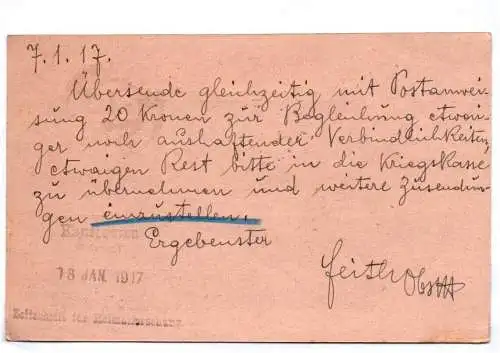 7.1.17.
Übersende gleichzeitig mit Postanwei-
sung 20 Kronen zur Begleichung etwai-
ger noch aushaftender Verbindlichkeiten,
etwaigen Rest bitte in die Kriegskasse
zu übernehmen und weitere Zusendun-
gen einzustellen.
Ergebenster
18 JAN. 1917
Zeitschrift für